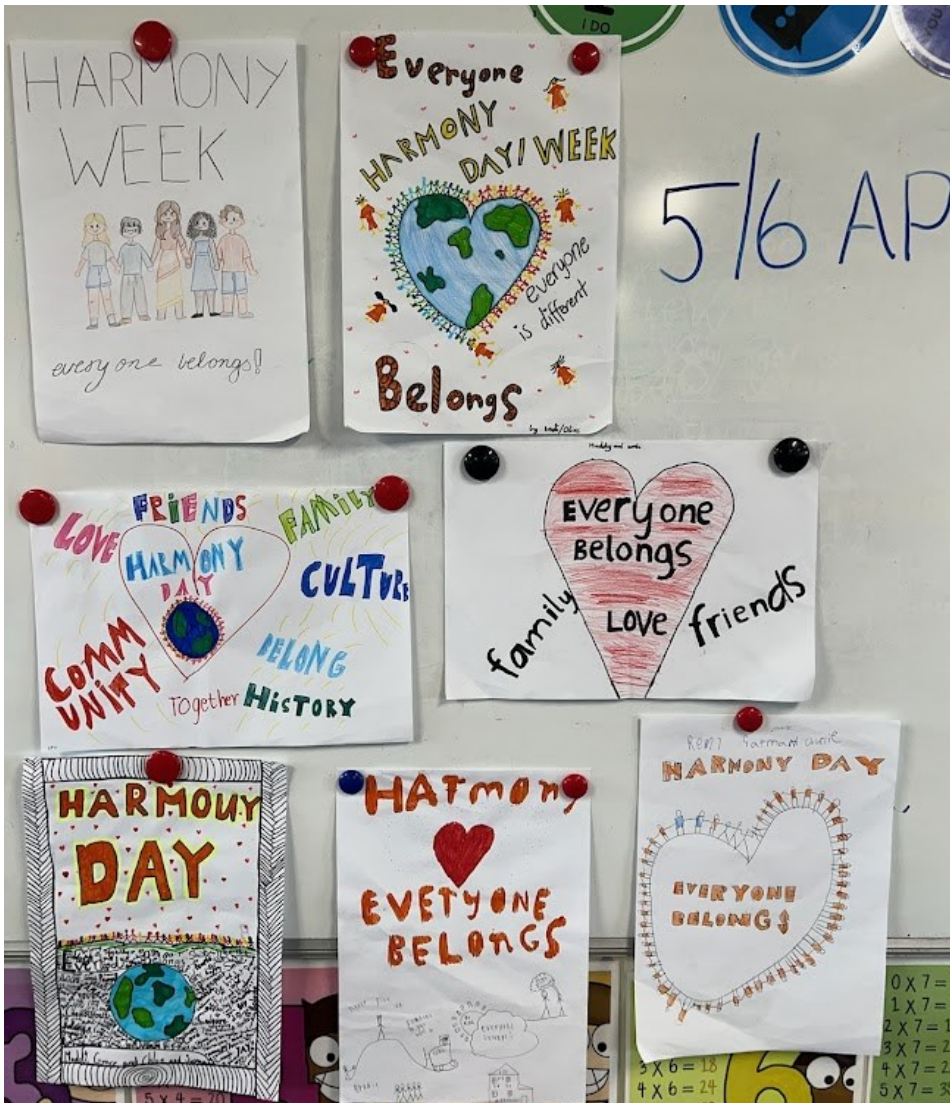 I DO
YOU
HARMONY
WEEK
everyone belongs!
Everyone
HARMONY
DAY/WEEK
everyone
is different
Belongs
5/6 AP
FRIENDS
FAMILY
LOVE
HARMONY
DAY
CULTURE
COMM
UNITY
BELONG
Together
HISTORY
Everyone
Belongs
LOVE
family
friends
HARMOUY
DAY
HATmony
EVETYONE
BELONGS
HARMONY DAY
EVERYONE
BELONGS
5 x 4 = 20
3 x 6 = 18
4 x 6 = 24
6
0 x 7 =
1 x 7 =
2 x 7 =
3 x 7 = 2
4 x 7 = 2
5 x 7 = 3